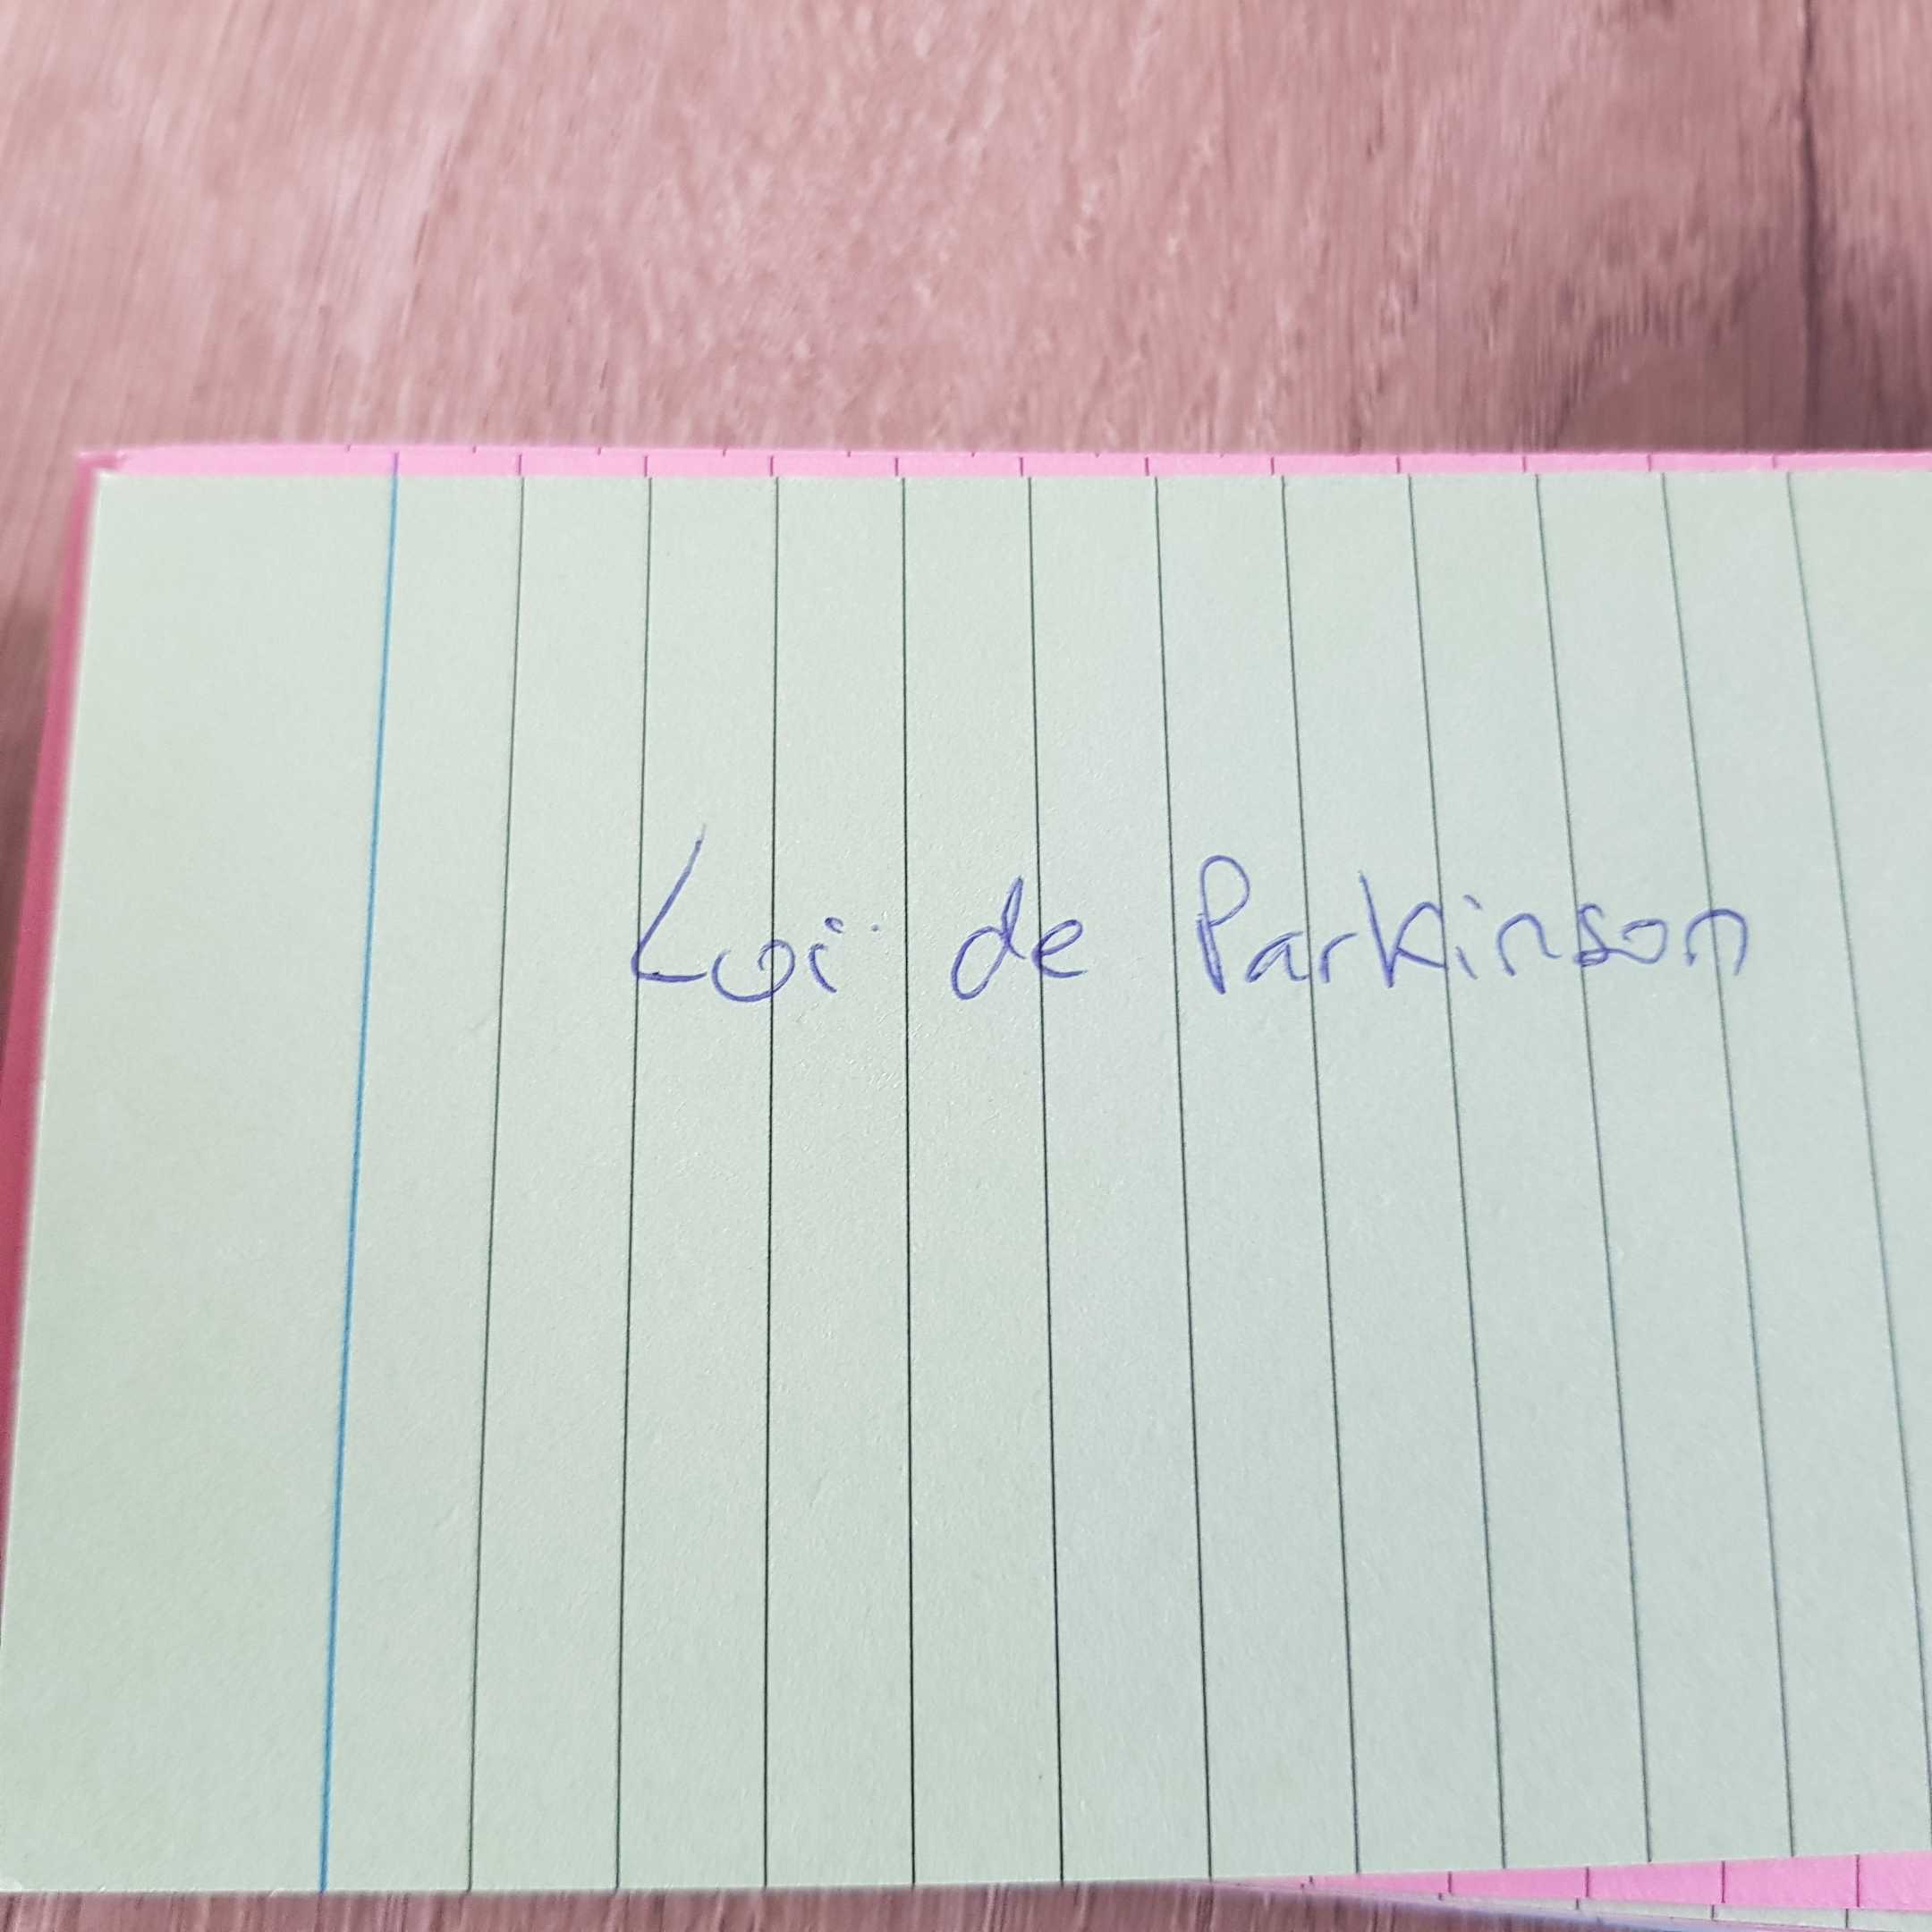 Loi de Parkinson